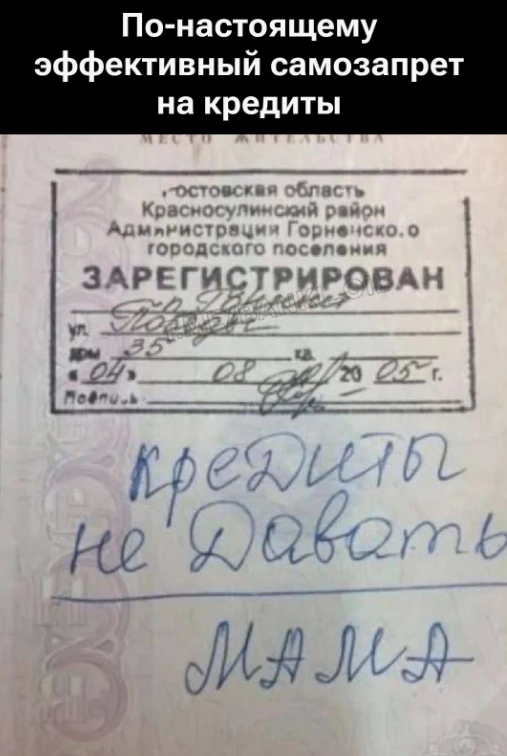 По-настоящему
эффективный самозапрет
на кредиты
МЕСТО ЖИТЕЛЬСТВА
остовская область
Красносулинский район
Администрация Горненско.о
городского поселения
ЗАРЕГИСТРИРОВАН
ул. Победы
дом 35 кв.
«04» 08 20 05 г.
Подпись
кредиты
не Давать
МАМА